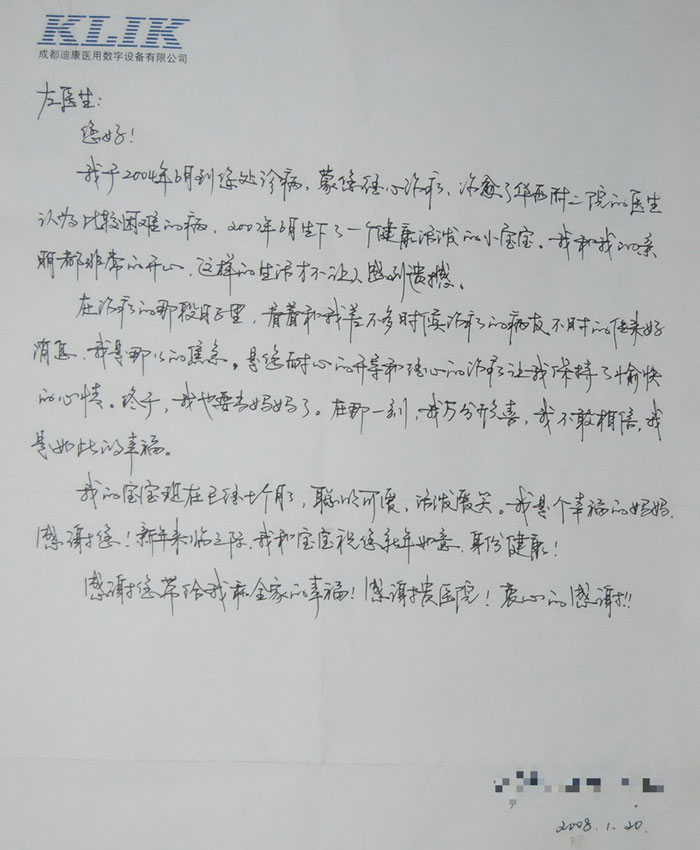 KLIK
成都迪康医用数字设备有限公司
左医生:
您好!
我于2004年6月到您处诊病,蒙您经心治疗,治愈了华西附二院的医生
认为比较困难的病,2007年6月生下了一个健康活泼的小宝宝。我和我的亲
朋都非常的开心,这样的生活才不让人感到遗憾。
在治疗的那段日子里,看着和我差不多时候治疗的病友不时的传来好
消息,我是那以的焦急。是您耐心的开导和经心的治疗让我保持了愉快
的心情。终于,我也要当妈妈了。在那一刻,我万分欣喜,我不敢相信,我
是如此的幸福。
我的宝宝现在已经七个月了,聪明可爱,活泼爱笑。我是个幸福的妈妈.
感谢您!新年来临之际,我和宝宝祝您新年如意、身份健康!
感谢您带给我和全家的幸福!感谢贵医院!衷心的感谢!!
2008.1.20.